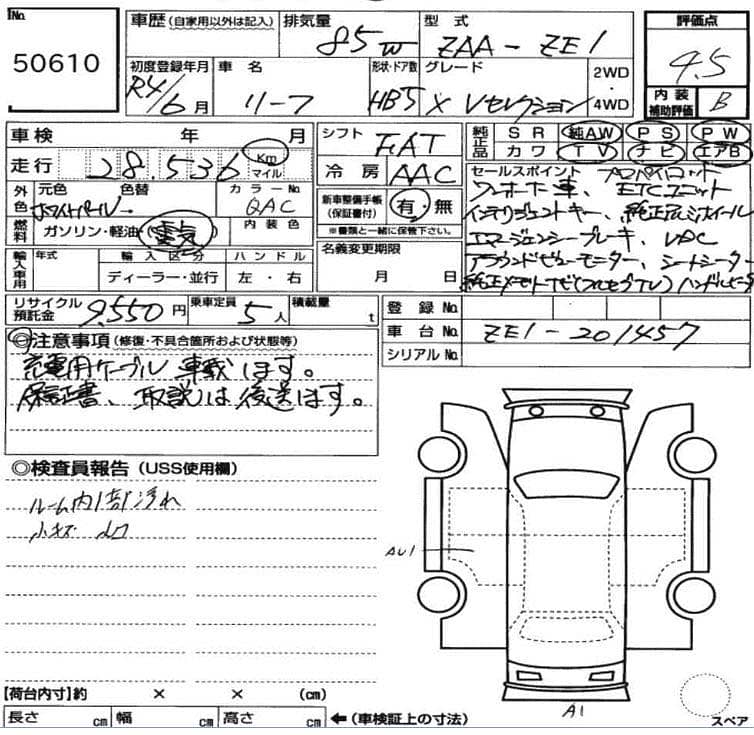 No.
50610
車歴 (自家用以外は記入)
排気量
85w
型式
ZAA-ZE1
評価点
4.5
内装
補助評価
B
初度登録年月
R4/6月
車名
リーフ
形状・ドア数
HB5
グレード
X Vセレクション
2WD
4WD
車検 年 月
走行 28.536 Km マイル
シフト
FAT
冷房 AAC
純正品
SR 純AW PS PW
カワ TV ナビ エアB
外色
元色 色替 カラーNo.
ホワイトパール QAC
燃料 ガソリン・軽油・(電気) 内装色
新車整備手帳
(保証書付)
有・無
※書類と一緒に保管下さい。
セールスポイント プロパイロット
ワンオーナー車、ETCユニット
インテリジェントキー、純正アルミホイール
エマージェンシーブレーキ、VDC
アラウンドビューモニター、シートヒーター
純正メモリナビ(フルセグTV) ハンドルヒーター
輸入車用
年式 輸入区分 ハンドル
ディーラー・並行 左・右
名義変更期限
月 日
リサイクル預託金 9,550円
乗車定員 5人
積載量 t
登録No.
車台No. ZE1-201457
シリアルNo.
◎注意事項 (修復・不具合箇所および状態等)
充電用ケーブル 車載します。
保証書、取説は後送します。
◎検査員報告 (USS使用欄)
ルーム内1部汚れ
小キズ 凹
AU1
A1
スペア
【荷台内寸】約 × × (cm)
長さ cm 幅 cm 高さ cm ←(車検証上の寸法)